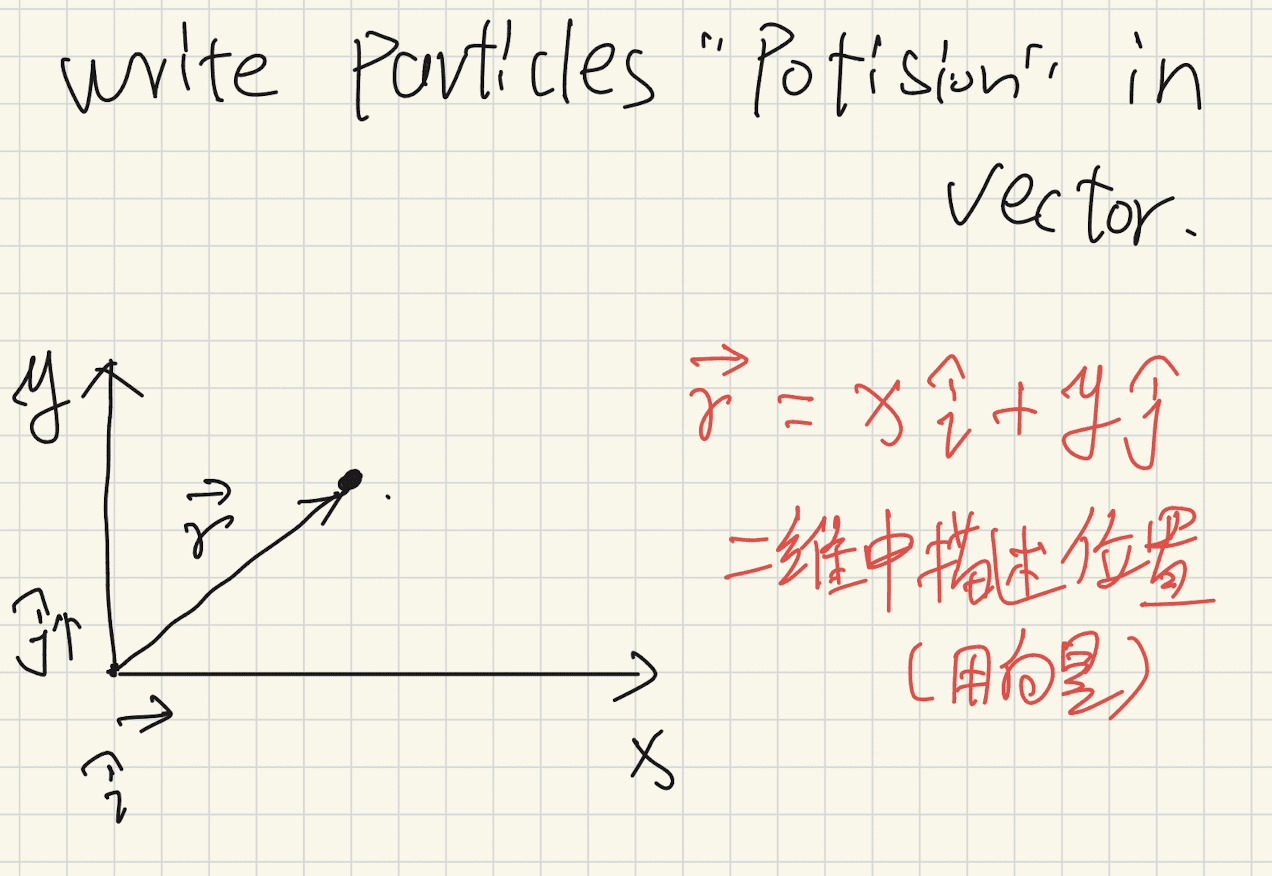 write Particles "Potision" in
vector.
y
r⃗ = x î + y ĵ
r⃗
二维中描述位置
ĵ
(用向量)
x
î